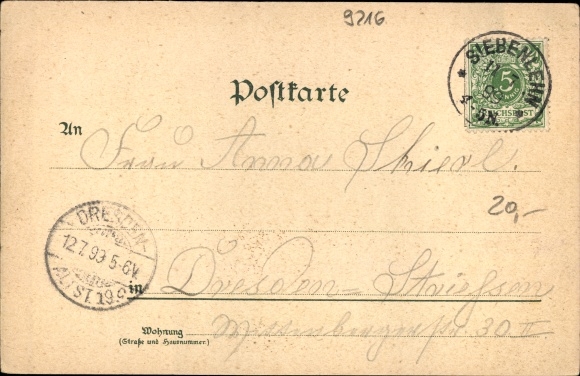 9216
* SIEBENLEHN *
11
4-5N.
5
REICHSPOST
Postkarte
An
Frau Anna Thierl.
20,-
DRESDEN-
12.7.99.5-6V.
ALTST. 19.
in Dresden-Striessen
Wohnung
(Straße und Hausnummer.)
Wittenbergerstr. 30 II